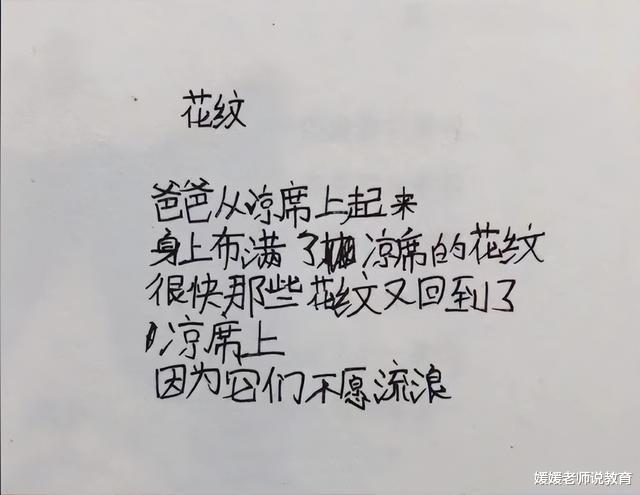 花纹
爸爸从凉席上起来
身上布满了凉席的花纹
很快那些花纹又回到了
凉席上
因为它们不愿流浪
媛媛老师说教育